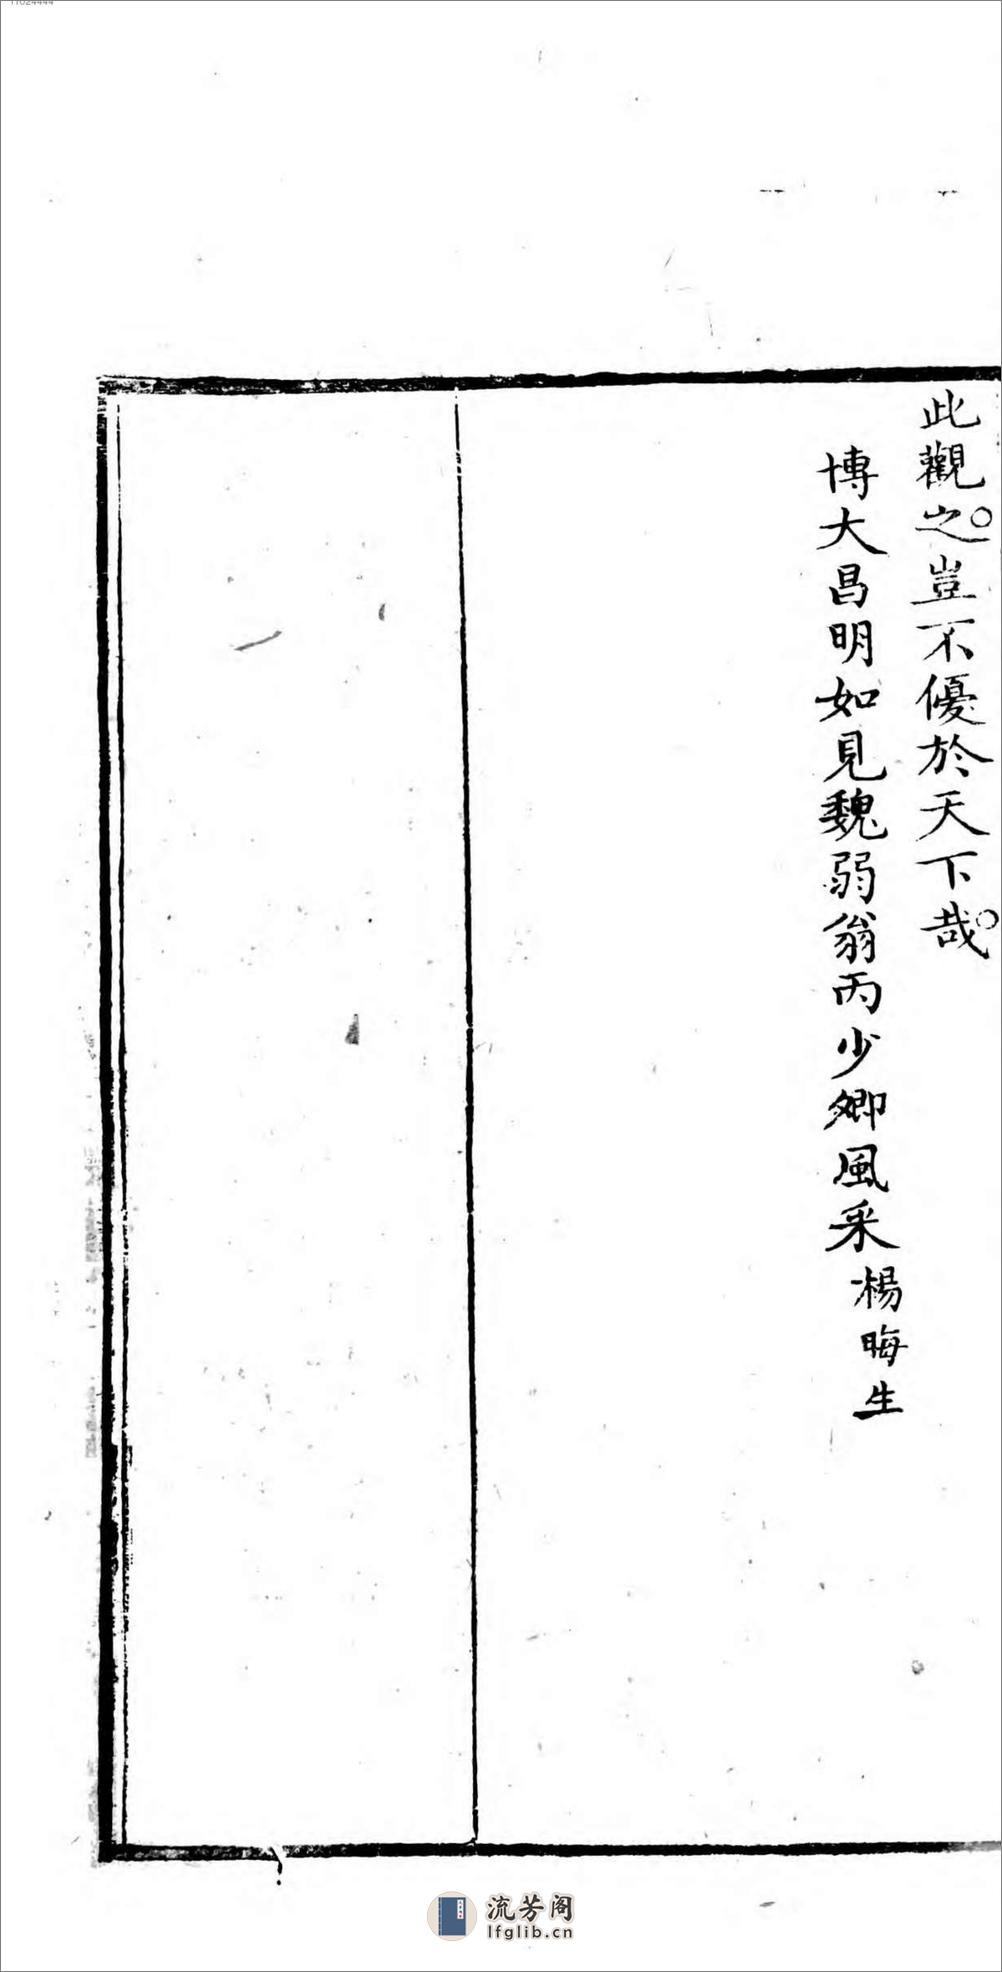 此觀之。豈不優於天下哉。
博大昌明如見魏弱翁丙少卿風采楊晦生
流芳阁
lfglib.cn